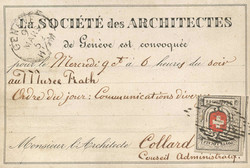 La SOCIÉTÉ des ARCHITECTES
de Genève est convoquée
pour le Mercredi 9 8t à 6 heures du soir
au Musée Rath
Ordre du jour: Communications diverses
Monsieur l'Architecte Collard
Conseil Administratif